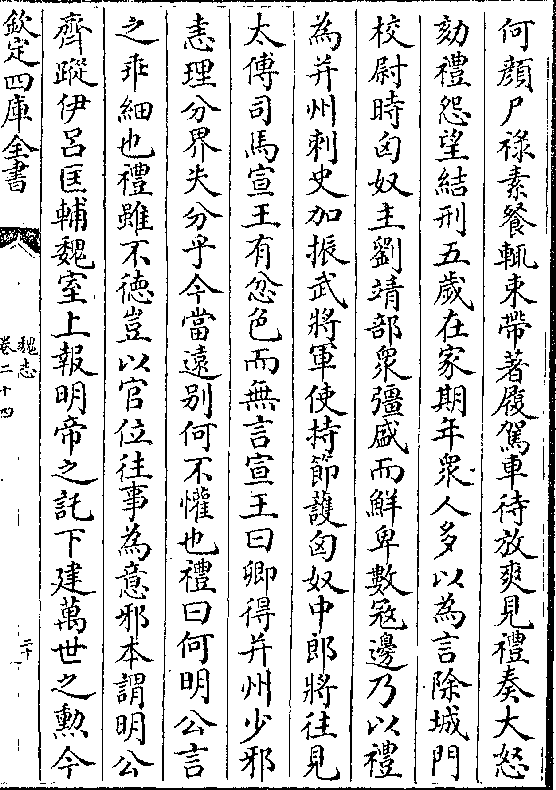 何顏尸祿素餐輒束帶著履駕車待放爽見禮奏大怒
劾禮怨望結刑五歲在家期年衆人多以為言除城門
校尉時匈奴主劉靖部衆彊盛而鮮卑數冦邊乃以禮
為并州刺史加振武將軍使持節護匈奴中郎將往見
太傅司馬宣王有忿色而無言宣王曰卿得并州少邪
恚理分界失分乎今當逺别何不懽也禮曰何明公言
之乖細也禮雖不德豈以官位往事為意邪本謂明公
齊蹤伊吕匡輔魏室上報明帝之託下建萬世之勲今
欽定四庫全書
魏志
卷二十四
二十